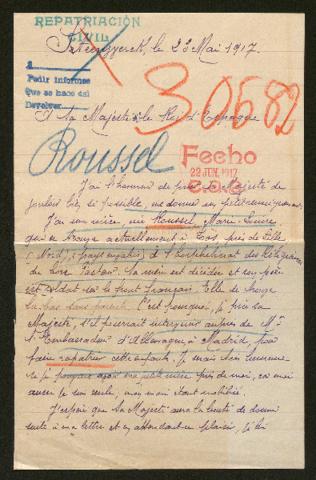 REPATRIACIÓN
CIVIL
Steenwerck, le 23 Mai 1917.
1
Pedir informes
Que se hace del
Devolver
30682
A Sa Majesté le Roi d'Espagne
Roussel
Fecho
22 JUN. 1917
J'ai l'honneur de prier Sa Majesté de
vouloir bien, si possible, me donner un petit renseignement.
J'ai une nièce, une Roussel, Marie-Louise
qui se trouve actuellement à Loos, près de Lille
(Nord), (pays envahis) à l'
du Père Pasteur. Sa mère est décédée et son père
est soldat sur le front français. Elle se trouve
là-bas sans parents. C'est pourquoi, je prie Sa
Majesté, s'il pourrait intervenir auprès de Mr
l'Embassadeur d'Allemagne à Madrid, pour
faire rapatrier cette enfant. Je serais bien heureuse
si je pouvais avoir ma petite nièce près de moi, car moi
aussi je suis seule, mon mari étant mobilisé.
J'espère que Sa Majesté aura la bonté de donner
suite à ma lettre et en attendant ce plaisir, j'ai